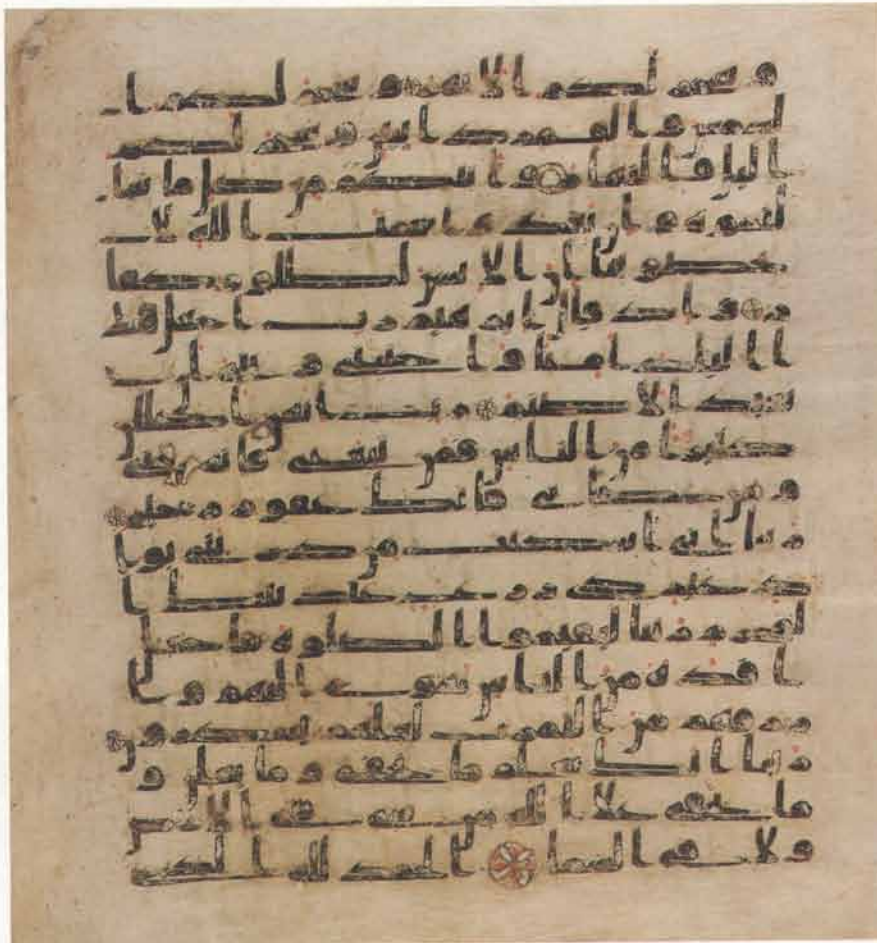 و سخر لكم الانهر و سخر لكم ا
لشمس و القمر دايبين و سخر لكم
اليل و النهار و اتيكم من كل ما سا
لتموه و ان تعدوا نعمت الله لا ت
حصوها ان الانسن لظلوم كفا
ر و اذ قال ابرهيم رب اجعل هذ
ا البلد امنا و اجنبني و بني ان
نعبد الاصنم رب انهن اضللن
كثيرا من الناس فمن تبعني فانه مني
و من عصاني فانك غفور رحيم
ربنا اني اسكنت من ذريتي بوا
د غير ذي زرع عند بيتك ا
لمحرم ربنا ليقيموا الصلوة فاجعل
افدة من الناس تهوي اليهم و ا
رزقهم من الثمرت لعلهم يشكرون
ربنا انك تعلم ما نخفي و ما نعلن و
ما يخفى على الله من شي في الارض
ولا في السما الحمد لله الذي